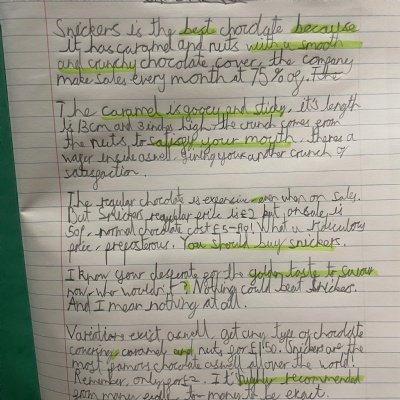 Snickers is the best chocolate because
it has caramel and nuts with a smooth
and crunchy chocolate cover, the company
make sales every month at 75% of. The
The caramel is gooey and sticky, it's length
is 13cm and 3 inches high. the crunch comes from
the nuts to satisfy your mouth. theres a
wafer inside aswell. giving your another crunch of
satisfaction.
The regular chocolate is expensive even when on sales.
But Snickers regular price is £2 but, onsale is
50p, normal chocolate cost £5-
price, preposterous. You should buy snickers.
I know your desperate for the golden taste to savour
now, who wouldn't? Nothing could beat Snickers.
And I mean nothing at all.
Variations exist aswell, get any type of chocolate
covering, caramel and nuts for £1.50. Snickers are the
most famous chocolate aswell all over the world.
Remember, only for £2. It's highly recommended
from many people